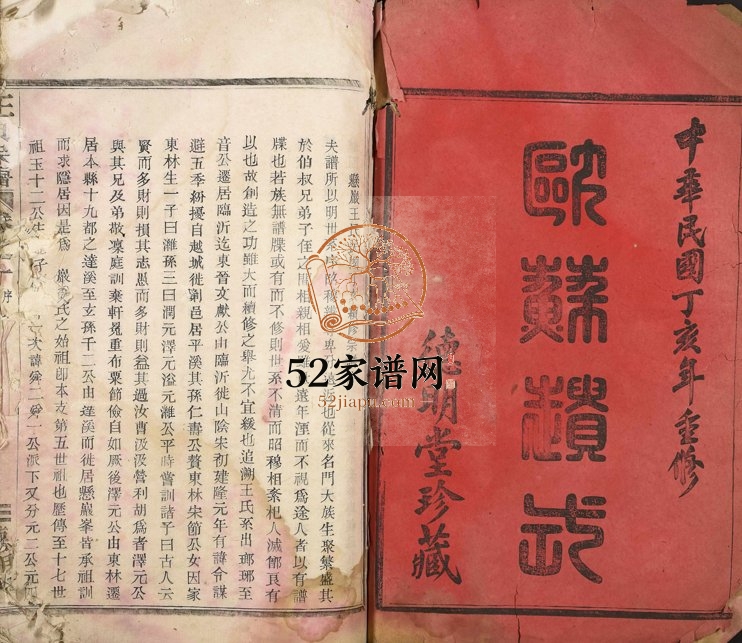 中華民國丁亥年重修
歐蘇遺式
德明堂珍藏
52家谱网
52jiapu.com
懸巖王氏
夫譜所以明世 也從來名門大族生聚繁盛其
於伯叔兄弟子侄之間相親相愛 遠年湮而不視為途人者以有譜
牒也若族無譜牒或有而不修則世系不清而昭穆相紊杞人滅鄫良有
以也故創造之功雖大而續修之舉尤不宜緩也追溯王氏系出瑯琊至
音公遷居臨沂迄東晉文獻公由臨沂徙山陰宋初建隆元年有諱令謀
避五季紛擾自越城徙剡邑居平溪其孫仁壽公贅東林宋節公女因家
東林生一子曰濰孫三曰潤元澤元溢元濰公平時嘗訓諸子曰古人云
賢而多財則損其志愚而多財則益其過汝曹汲汲營利胡為者澤元公
與其兄及弟敬稟庭訓棄軒冕重布粟節儉自如厥後澤元公由東林遷
居本縣十九都之達溪至玄孫千二公由達溪而徙居懸巖峯皆承祖訓
而求隱居因是為 巖 氏之始祖即本支第五世祖也歷傳至十七世
祖玉十二公生 子 次諱舜二舜一公派下又分元二公元四